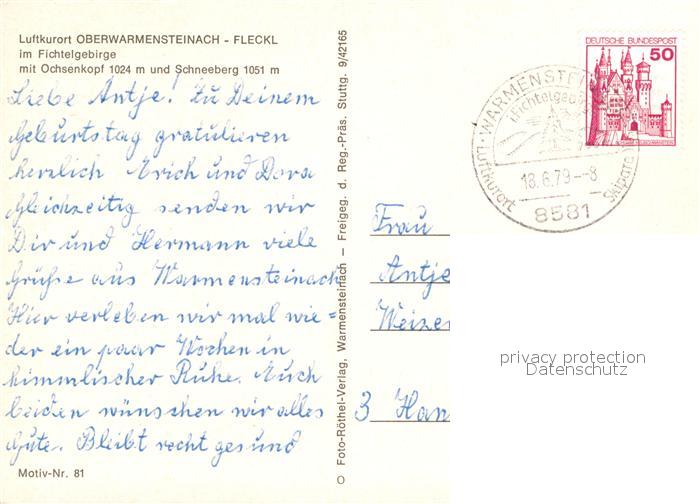 Luftkurort OBERWARMENSTEINACH - FLECKL
im Fichtelgebirge
mit Ochsenkopf 1024 m und Schneeberg 1051 m
Liebe Antje! Zu Deinem
Geburtstag gratulieren
herzlich Erich und Dora
Gleichzeitig senden wir
Dir und Hermann viele
Grüße aus Warmensteinach
Hier verleben wir mal wie=
der ein paar Wochen in
himmlischer Ruhe. Euch
beiden wünschen wir alles
Gute. Bleibt recht gesund
Motiv-Nr. 81
Foto-Röthel-Verlag, Warmensteinach — Freigeg. d. Reg.-Präs. Stuttg. 9/42165
DEUTSCHE BUNDESPOST
50
WARMENSTEI
Fichtelgeb
18.6.79--8
Luftkurort
8581
Frau
Antje
Weizen
3 Han
privacy protection
Datenschutz